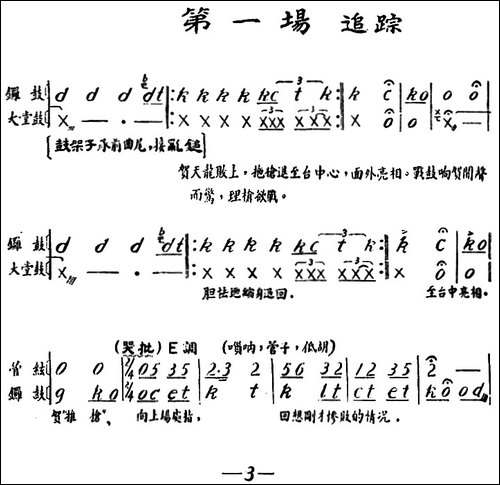 第一場 追踪
鑼鼓 d d d dt k k k k kc t k k c ko o o
大堂鼓 X — · — X X X X XXX XXX X o o X o
鼓架子承前曲尾,接亂鎚
賀天龍敗上,拖槍退至台中心,面外亮相。戰鼓响賀聞聲
而驚,理槍欲戰。
鑼鼓 d d d dt k k k k kc t k k c ko
大堂鼓 X — · — X X X X XXX XXX X o o
胆怯 身退回。 至台中亮相。
(哭批) E調 (嗩呐,管子,低胡)
管絃 0 0 2/4 05 35 2·3 2 56 32 12 35 2 —
鑼鼓 g ko 2/4 oc et k t k lt ct et ko od
賀"推槍", 向上場處指, 回想剛才慘敗的情况.
—3—